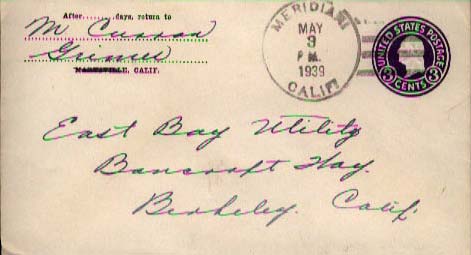 After......days, return to
M Curran
Grimes
MARYSVILLE, CALIF.
MERIDIAN
MAY
3
P M.
1939
CALIF.
UNITED STATES POSTAGE
3 CENTS 3
East Bay Utility
Bancroft Way.
Berkeley. Calif.